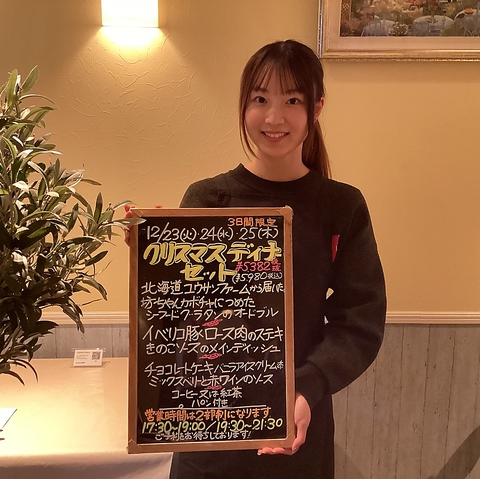 3日間限定
12/23(火)・24(水)・25(木)
クリスマスディナー
セット ¥5382税抜
(¥5,980税込)
北海道ユウサンファームから届いた
坊ちゃんカボチャにつめた
シーフードグラタンのオードブル
イベリコ豚ロース肉のステーキ
きのこソースのメインディッシュ
チョコレートケーキバニラアイスクリーム添
ミックスベリーと赤ワインのソース
コーヒー又は紅茶
パン付き
営業時間は2部制になります
17:30~19:00/19:30~21:30
ご予約お待ちしております!